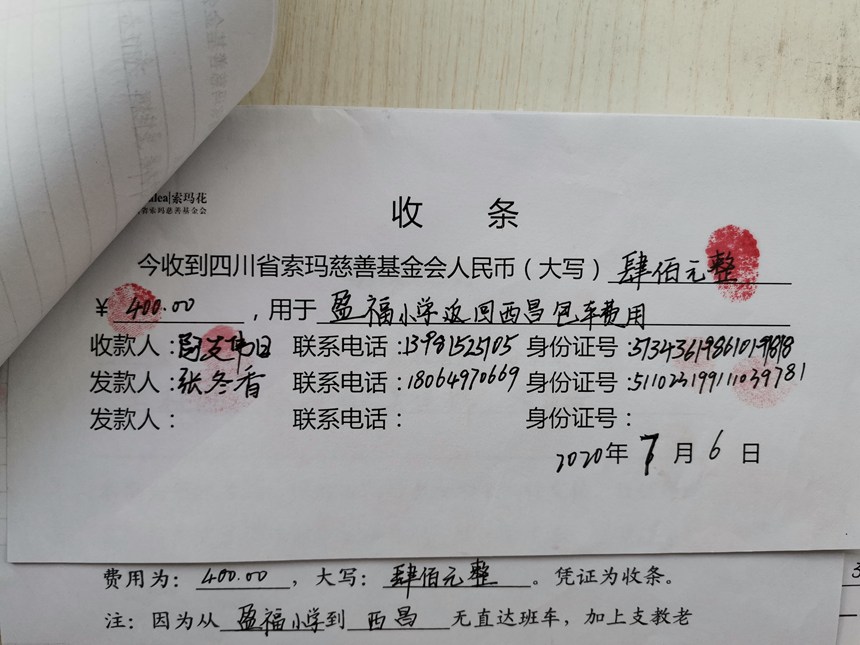 索玛花
省索玛慈善基金会
收 条
今收到四川省索玛慈善基金会人民币（大写）肆佰元整
￥400.00，用于盈福小学返回西昌包车费用
收款人： 联系电话：13981525105 身份证号：
发款人：张冬香 联系电话：18064970669 身份证号：511023199111039781
发款人： 联系电话： 身份证号：
2020年7月6日
费用为：400.00，大写：肆佰元整。凭证为收条。
注：因为从盈福小学到西昌无直达班车，加上支教老